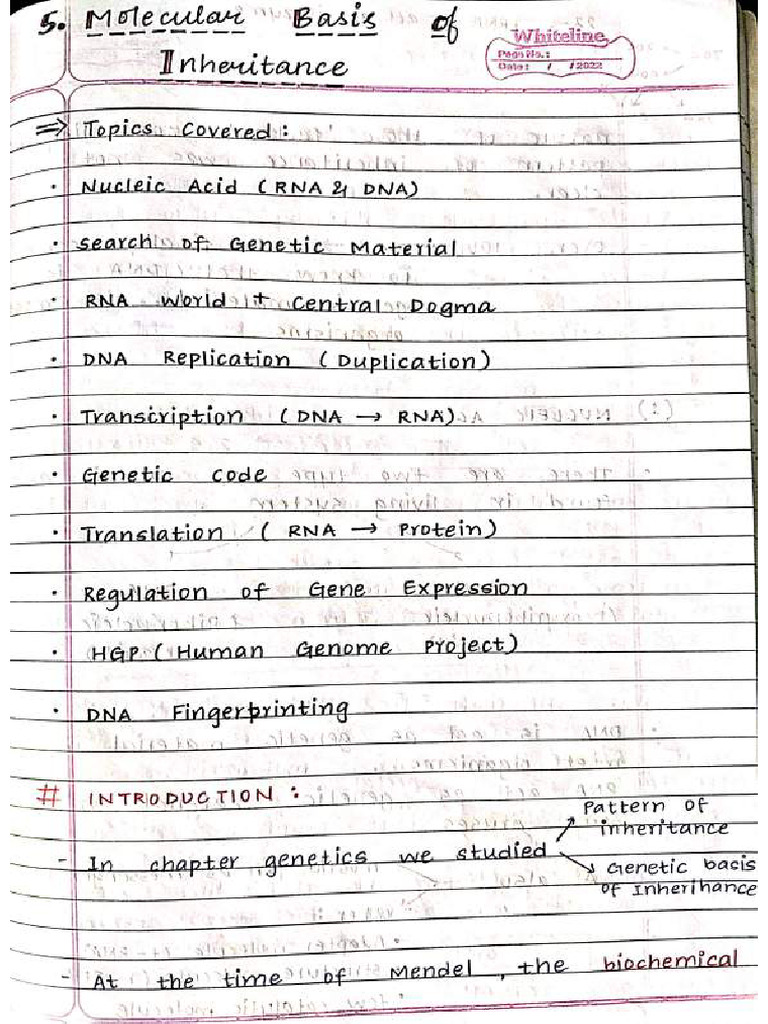 5. Molecular Basis of
Inheritance
Whiteline
Page No.:
Date: / /2022
⇒ Topics Covered:
· Nucleic Acid (RNA & DNA)
· Search of Genetic Material
· RNA World + Central Dogma
· DNA Replication (Duplication)
· Transcription (DNA → RNA)
· Genetic code
· Translation (RNA → Protein)
· Regulation of Gene Expression
· HGP (Human Genome Project)
· DNA Fingerprinting
# INTRODUCTION :
- In chapter genetics we studied
Pattern of
inheritance
Genetic bacis
of Inherihance
- At the time of Mendel, the biochemical